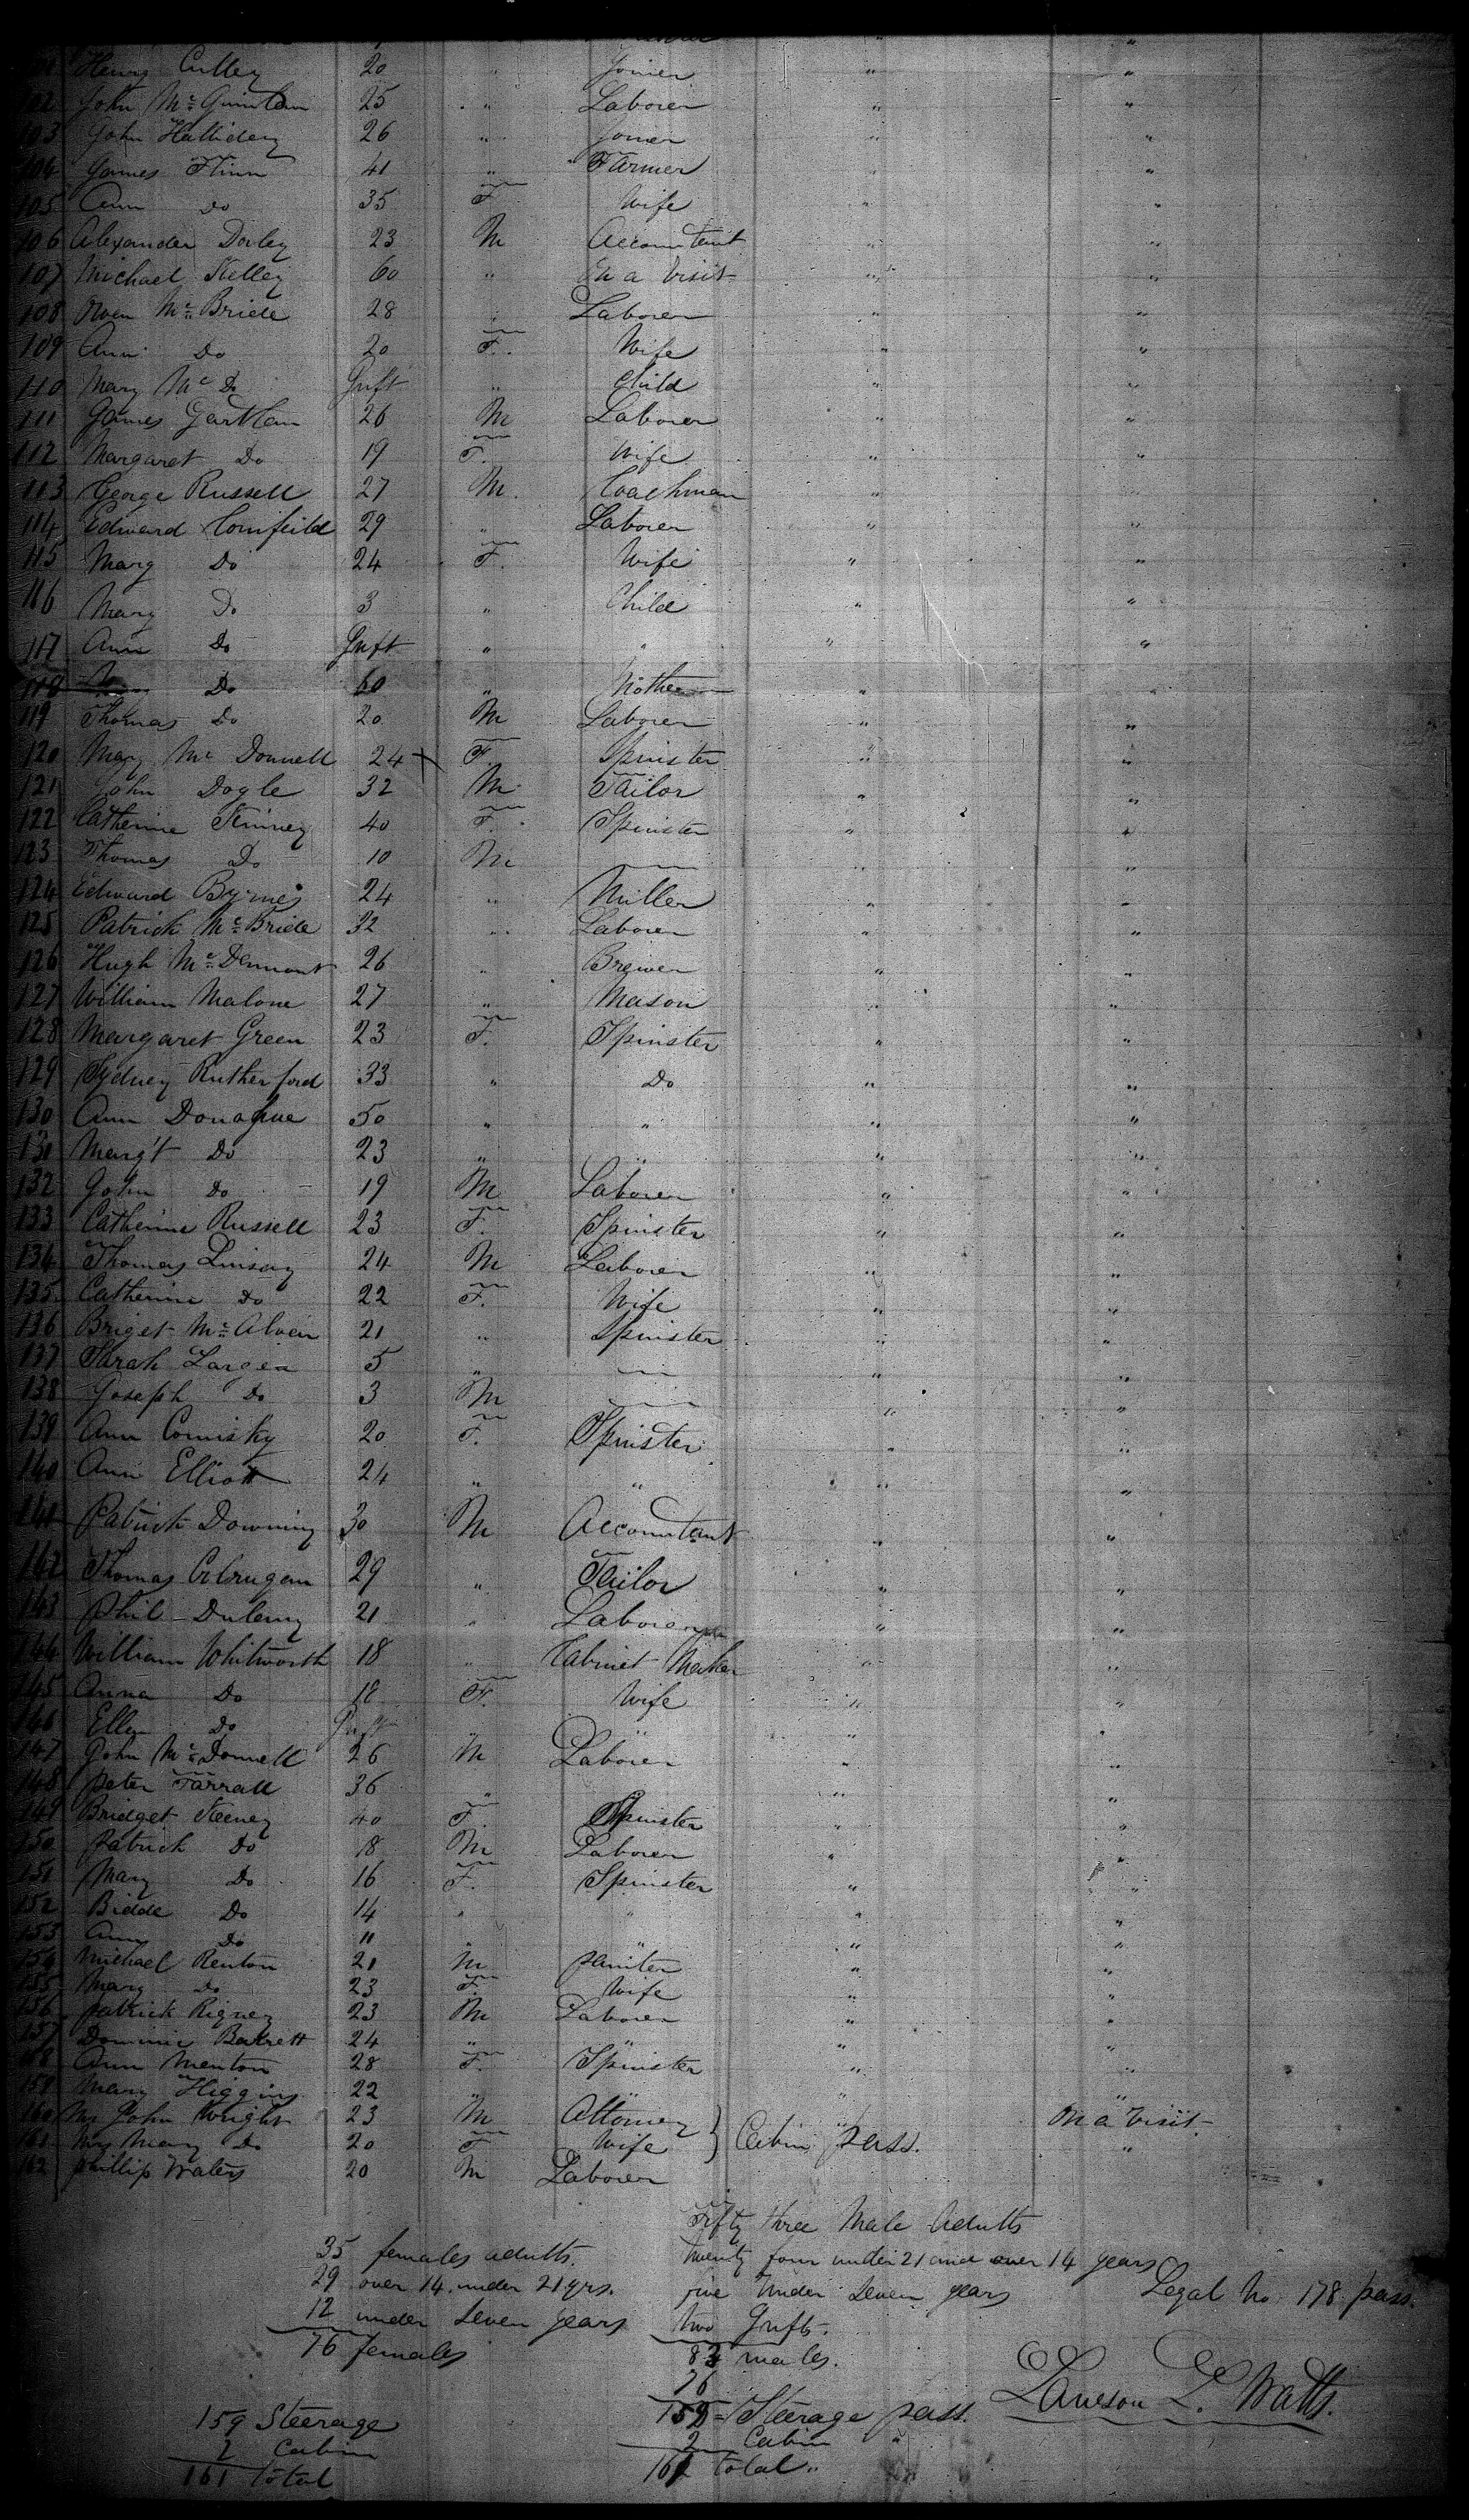 Henry Culley 20 " Joiner " "
102 John Mc Quinlan 25 " Laborer " "
103 John Halliday 26 " Joiner " "
104 James Flinn 41 " Farmer " "
105 Ann Do 35 F Wife " "
106 Alexander Daley 23 M Accountant " "
107 Michael Kelley 60 " On a Visit " "
108 Owen Mc Bride 28 " Laborer " "
109 Ann Do 20 F. Wife " "
110 Mary Mc Do Inft " Child " "
111 James Gartlan 26 M Laborer " "
112 Margaret Do 19 F. Wife " "
113 George Russell 27 M. Coachman " "
114 Edward Comfeild 29 " Laborer " "
115 Mary Do 24 F. Wife " "
116 Mary Do 3 " Child " "
117 Ann Do Inft " " " "
118 Do 60 " Mother " "
119 Thomas Do 20 M Laborer " "
120 Mary Mc Donnell 24 F. Spinster " "
121 John Doyle 32 M Tailor " "
122 Catherine Kinney 40 F. Spinster " "
123 Thomas Do 10 M " "
124 Edward Byrnes 24 " Miller " "
125 Patrick Mc Bride 32 " Laborer " "
126 Hugh Mc Dermont 26 " Brewer " "
127 William Malone 27 " Mason " "
128 Margaret Green 23 F. Spinster " "
129 Sydney Rutherford 33 " Do " "
130 Ann Donaghue 50 " " " "
131 Marg't Do 23 " " " "
132 John Do 19 M Laborer " "
133 Catherine Russell 23 F. Spinster " "
134 Thomas Linsay 24 M Laborer " "
135 Catherine Do 22 F. Wife " "
136 Briget Mc 21 " Spinster " "
137 Sarah Largea 5 " " "
138 Joseph Do 3 M " "
139 Ann Comisky 20 F. Spinster " "
140 Ann Elliott 24 " " " "
141 Patrick Downing 30 M Accountant " "
142 Thomas 29 " Tailor " "
143 Phil 21 " Laborer " "
144 William Whitworth 18 " Cabinet Maker " "
145 Anna Do 18 F. Wife " "
146 Ellen Do Inft " " " "
147 John Mc Donnell 26 M Laborer " "
148 Peter Farrall 36 " " "
149 Bridget Keeney 40 F. Spinster " "
150 Patrick Do 18 M Laborer " "
151 Mary Do 16 F. Spinster " "
152 Bidde Do 14 " " " "
153 Ann Do 11 " " " "
154 Michael Renton 21 M Painter " "
155 Mary Do 23 F. Wife " "
156 Patrick Rigney 23 M Laborer " "
157 Dominic Barrett 24 " " " "
158 Ann Menton 28 F. Spinster " "
159 Mary Higgins 22 " " " "
160 Mr John Wright 23 M Attorney } Cabin pass. On a Visit.
161 Mrs Mary Do 20 F Wife "
162 Phillip Waters 20 M Laborer
Fifty three Male Adults
35 females adults. twenty four under 21 and over 14 years
29 over 14 under 21 yrs. five under Seven years Legal No 178 pass.
12 under Seven years two Infts.
76 females 83 males.
76
159 Steerage 159 = Steerage pass. Lawson L. Watts.
2 Cabin 2 Cabin "
161 total 161 total "